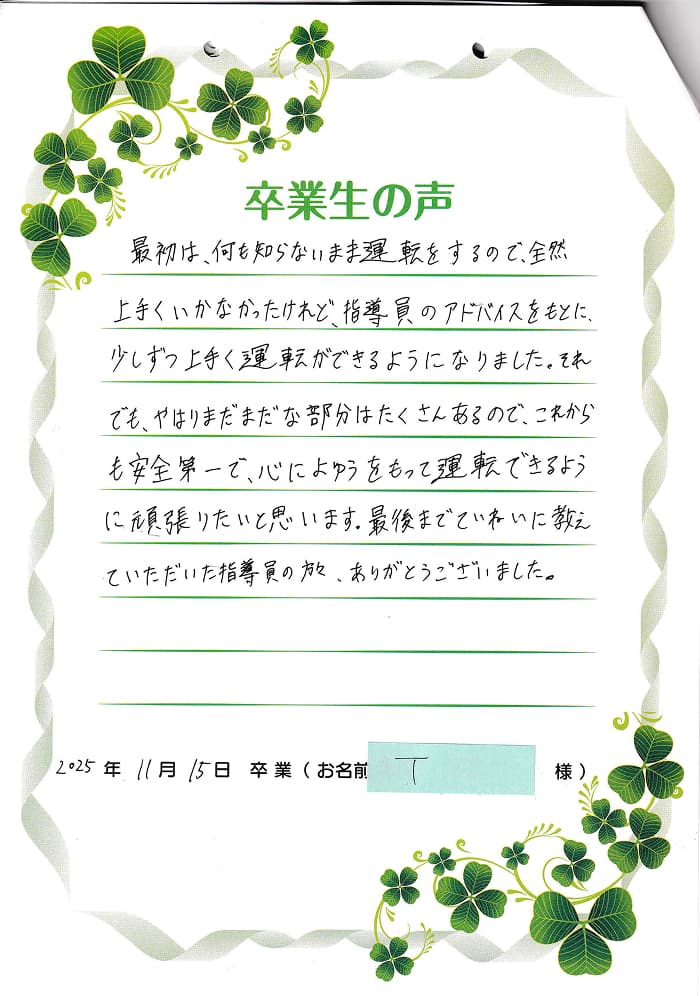 卒業生の声
最初は、何も知らないまま運転をするので、全然
上手くいかなかったけれど、指導員のアドバイスをもとに、
少しずつ上手く運転ができるようになりました。それ
でも、やはりまだまだな部分はたくさんあるので、これから
も安全第一で、心によゆうをもって運転できるよう
に頑張りたいと思います。最後までていねいに教え
ていただいた指導員の方々、ありがとうございました。
2025年 11月 15日 卒業(お名前 T 様)